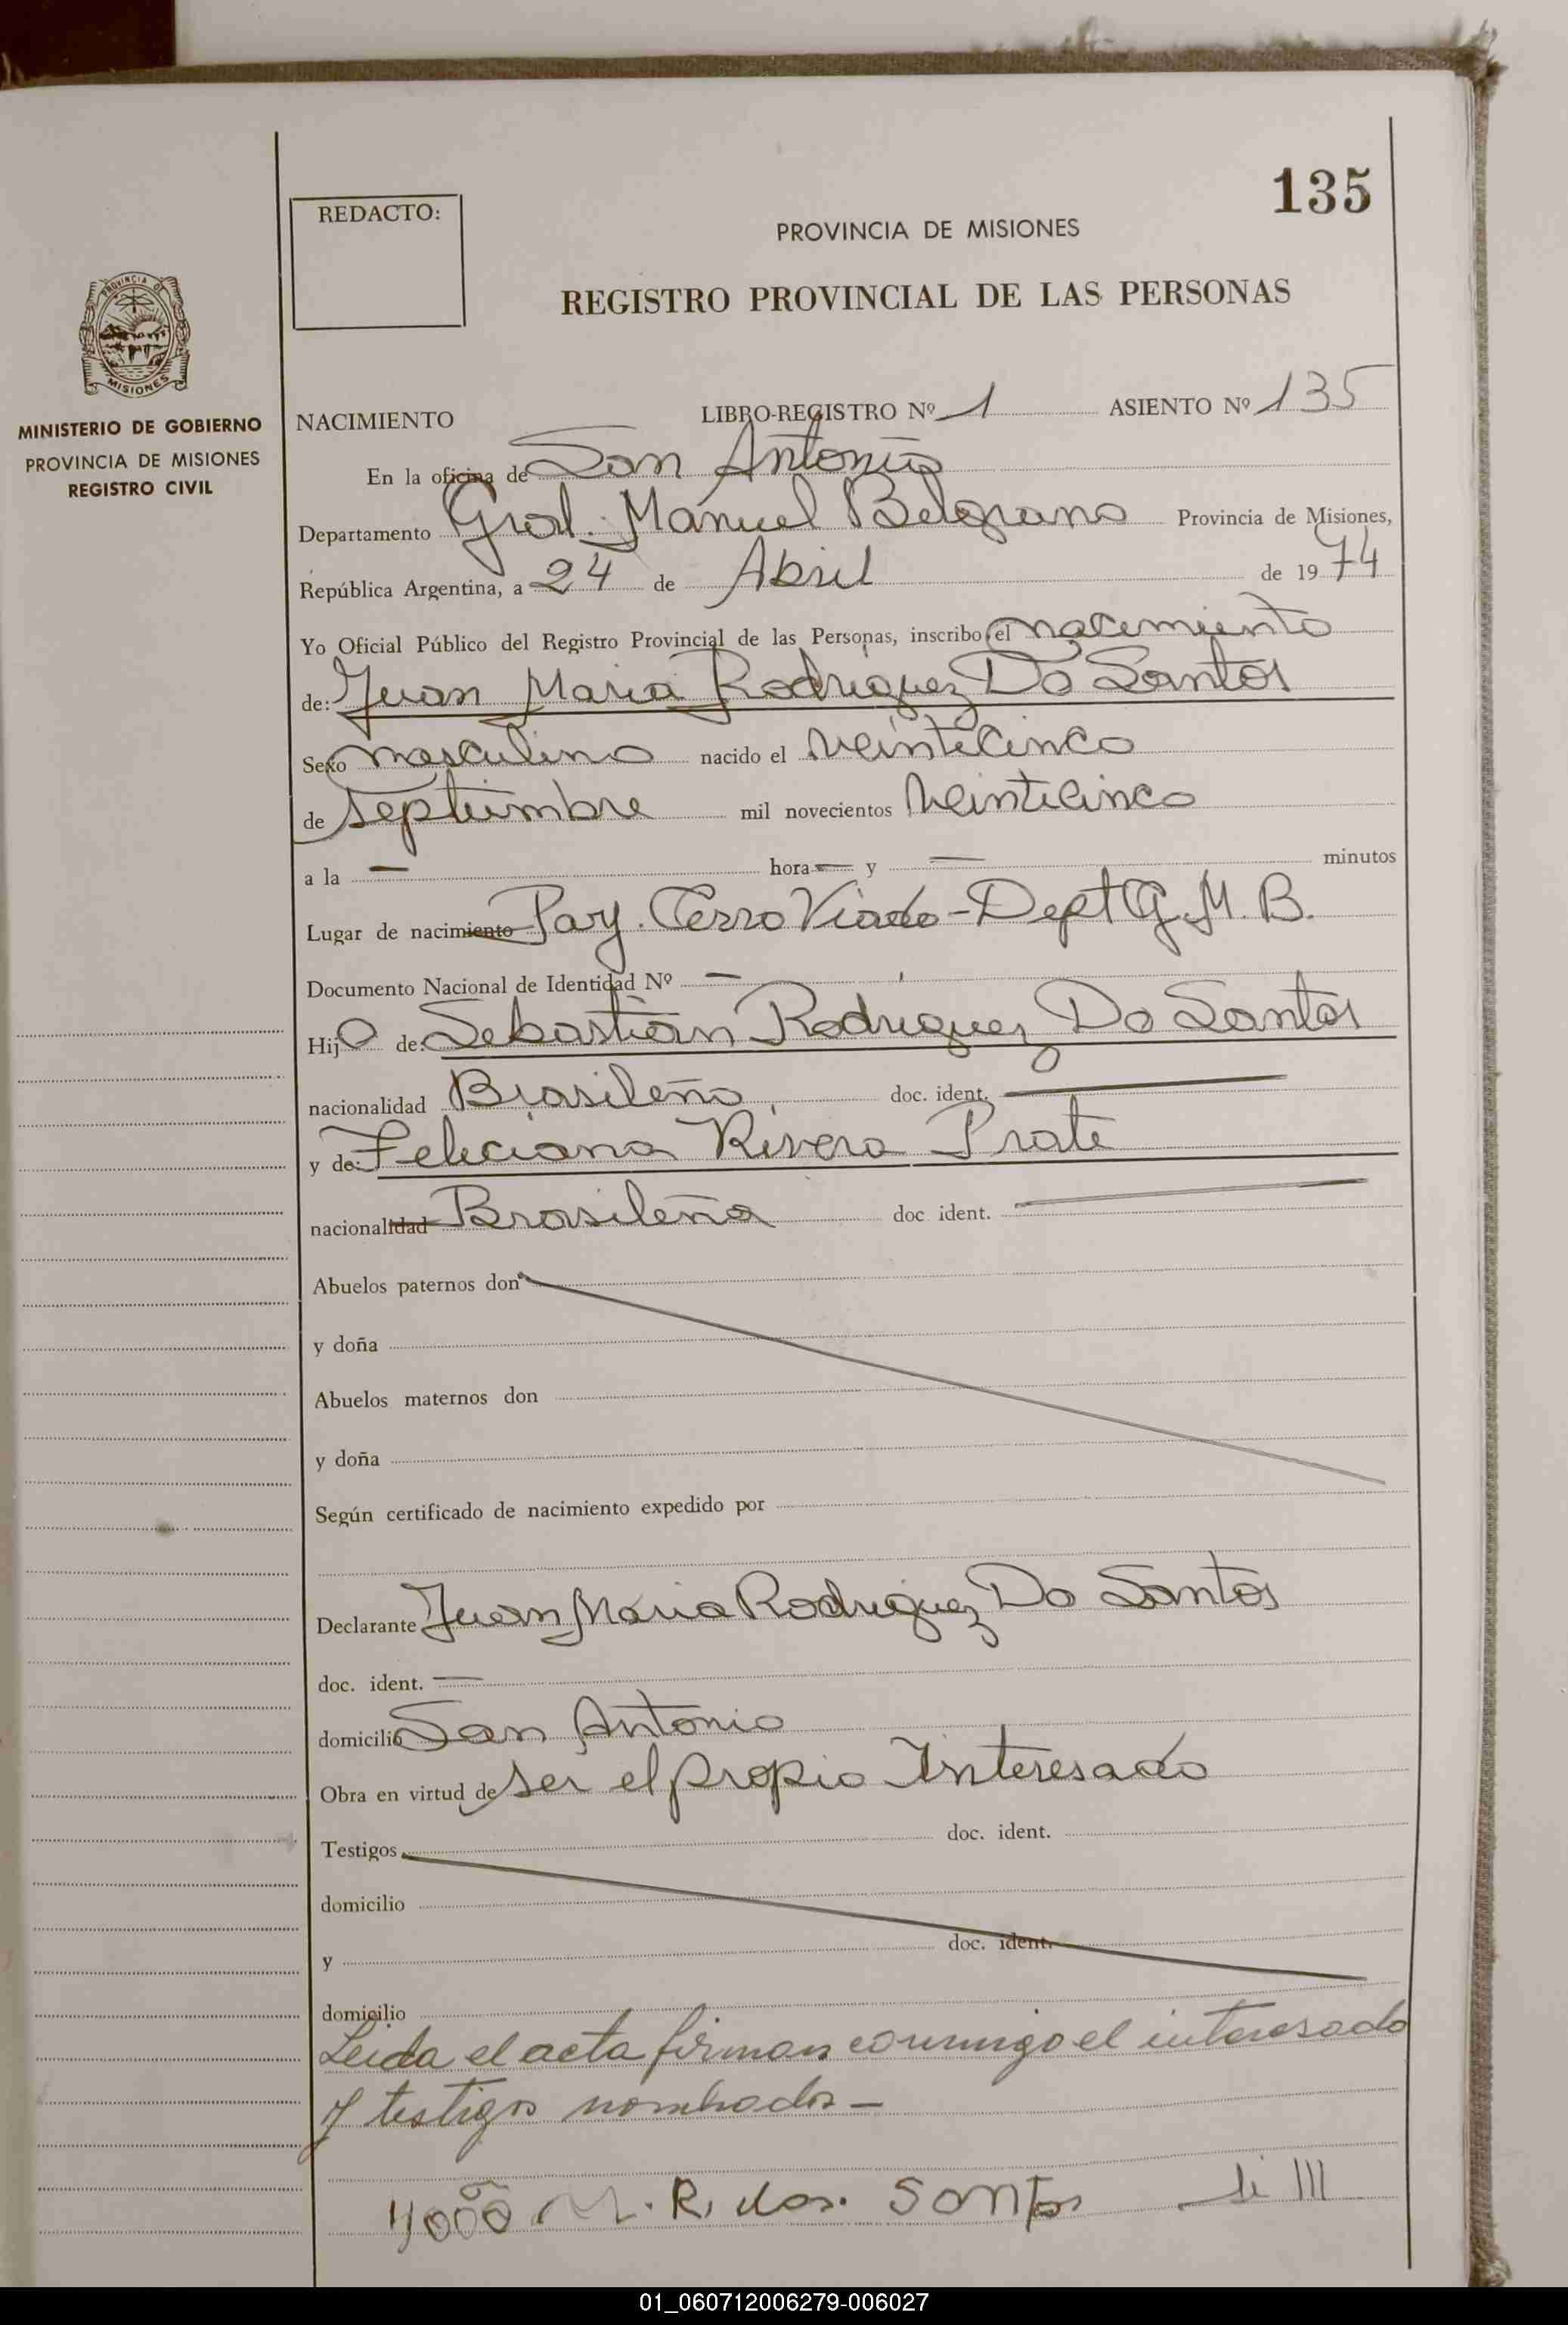 135
REDACTO:
PROVINCIA DE MISIONES
REGISTRO PROVINCIAL DE LAS PERSONAS
PROVINCIA DE
MISIONES
MINISTERIO DE GOBIERNO
PROVINCIA DE MISIONES
REGISTRO CIVIL
NACIMIENTO LIBRO-REGISTRO Nº 1 ASIENTO Nº 135
En la oficina de San Antonio
Departamento Gral. Manuel Belgrano Provincia de Misiones,
República Argentina, a 24 de Abril de 1974
Yo Oficial Público del Registro Provincial de las Personas, inscribo el nacimiento
de: Juan Maria Rodriguez Do Santos
Sexo masculino nacido el veinticinco
de septiembre mil novecientos veinticinco
a la — hora — y — minutos
Lugar de nacimiento Pay. Cerro Viado - Dept G. M. B.
Documento Nacional de Identidad Nº —
Hijo de: Sebastian Rodriguez Do Santos
nacionalidad Brasileño doc. ident. —
y de: Feliciana Rivera Prate
nacionalidad Brasileña doc ident. —
Abuelos paternos don
y doña
Abuelos maternos don
y doña
Según certificado de nacimiento expedido por
Declarante Juan Maria Rodriguez Do Santos
doc. ident. —
domicilio San Antonio
Obra en virtud de ser el propio Interesado
Testigos doc. ident.
domicilio
y doc. ident.
domicilio
Leida el acta firman conmigo el interesado
y testigos nombrados —
R. dos. Santos
01_060712006279-006027